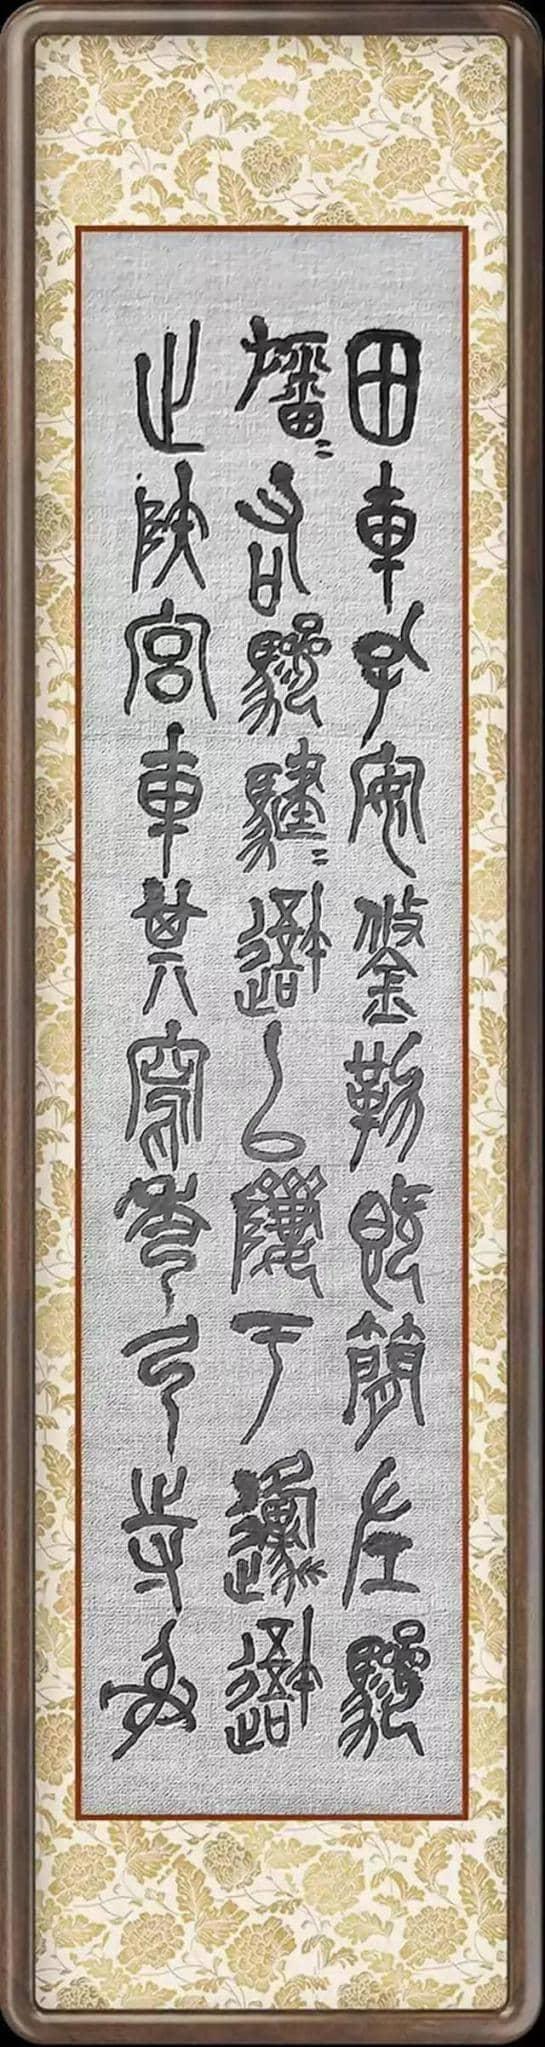 田車孔安鋚勒既簡左驂
旛=右驂騝=吾以隮于邍吾
止陸宮車其寫秀弓寺射